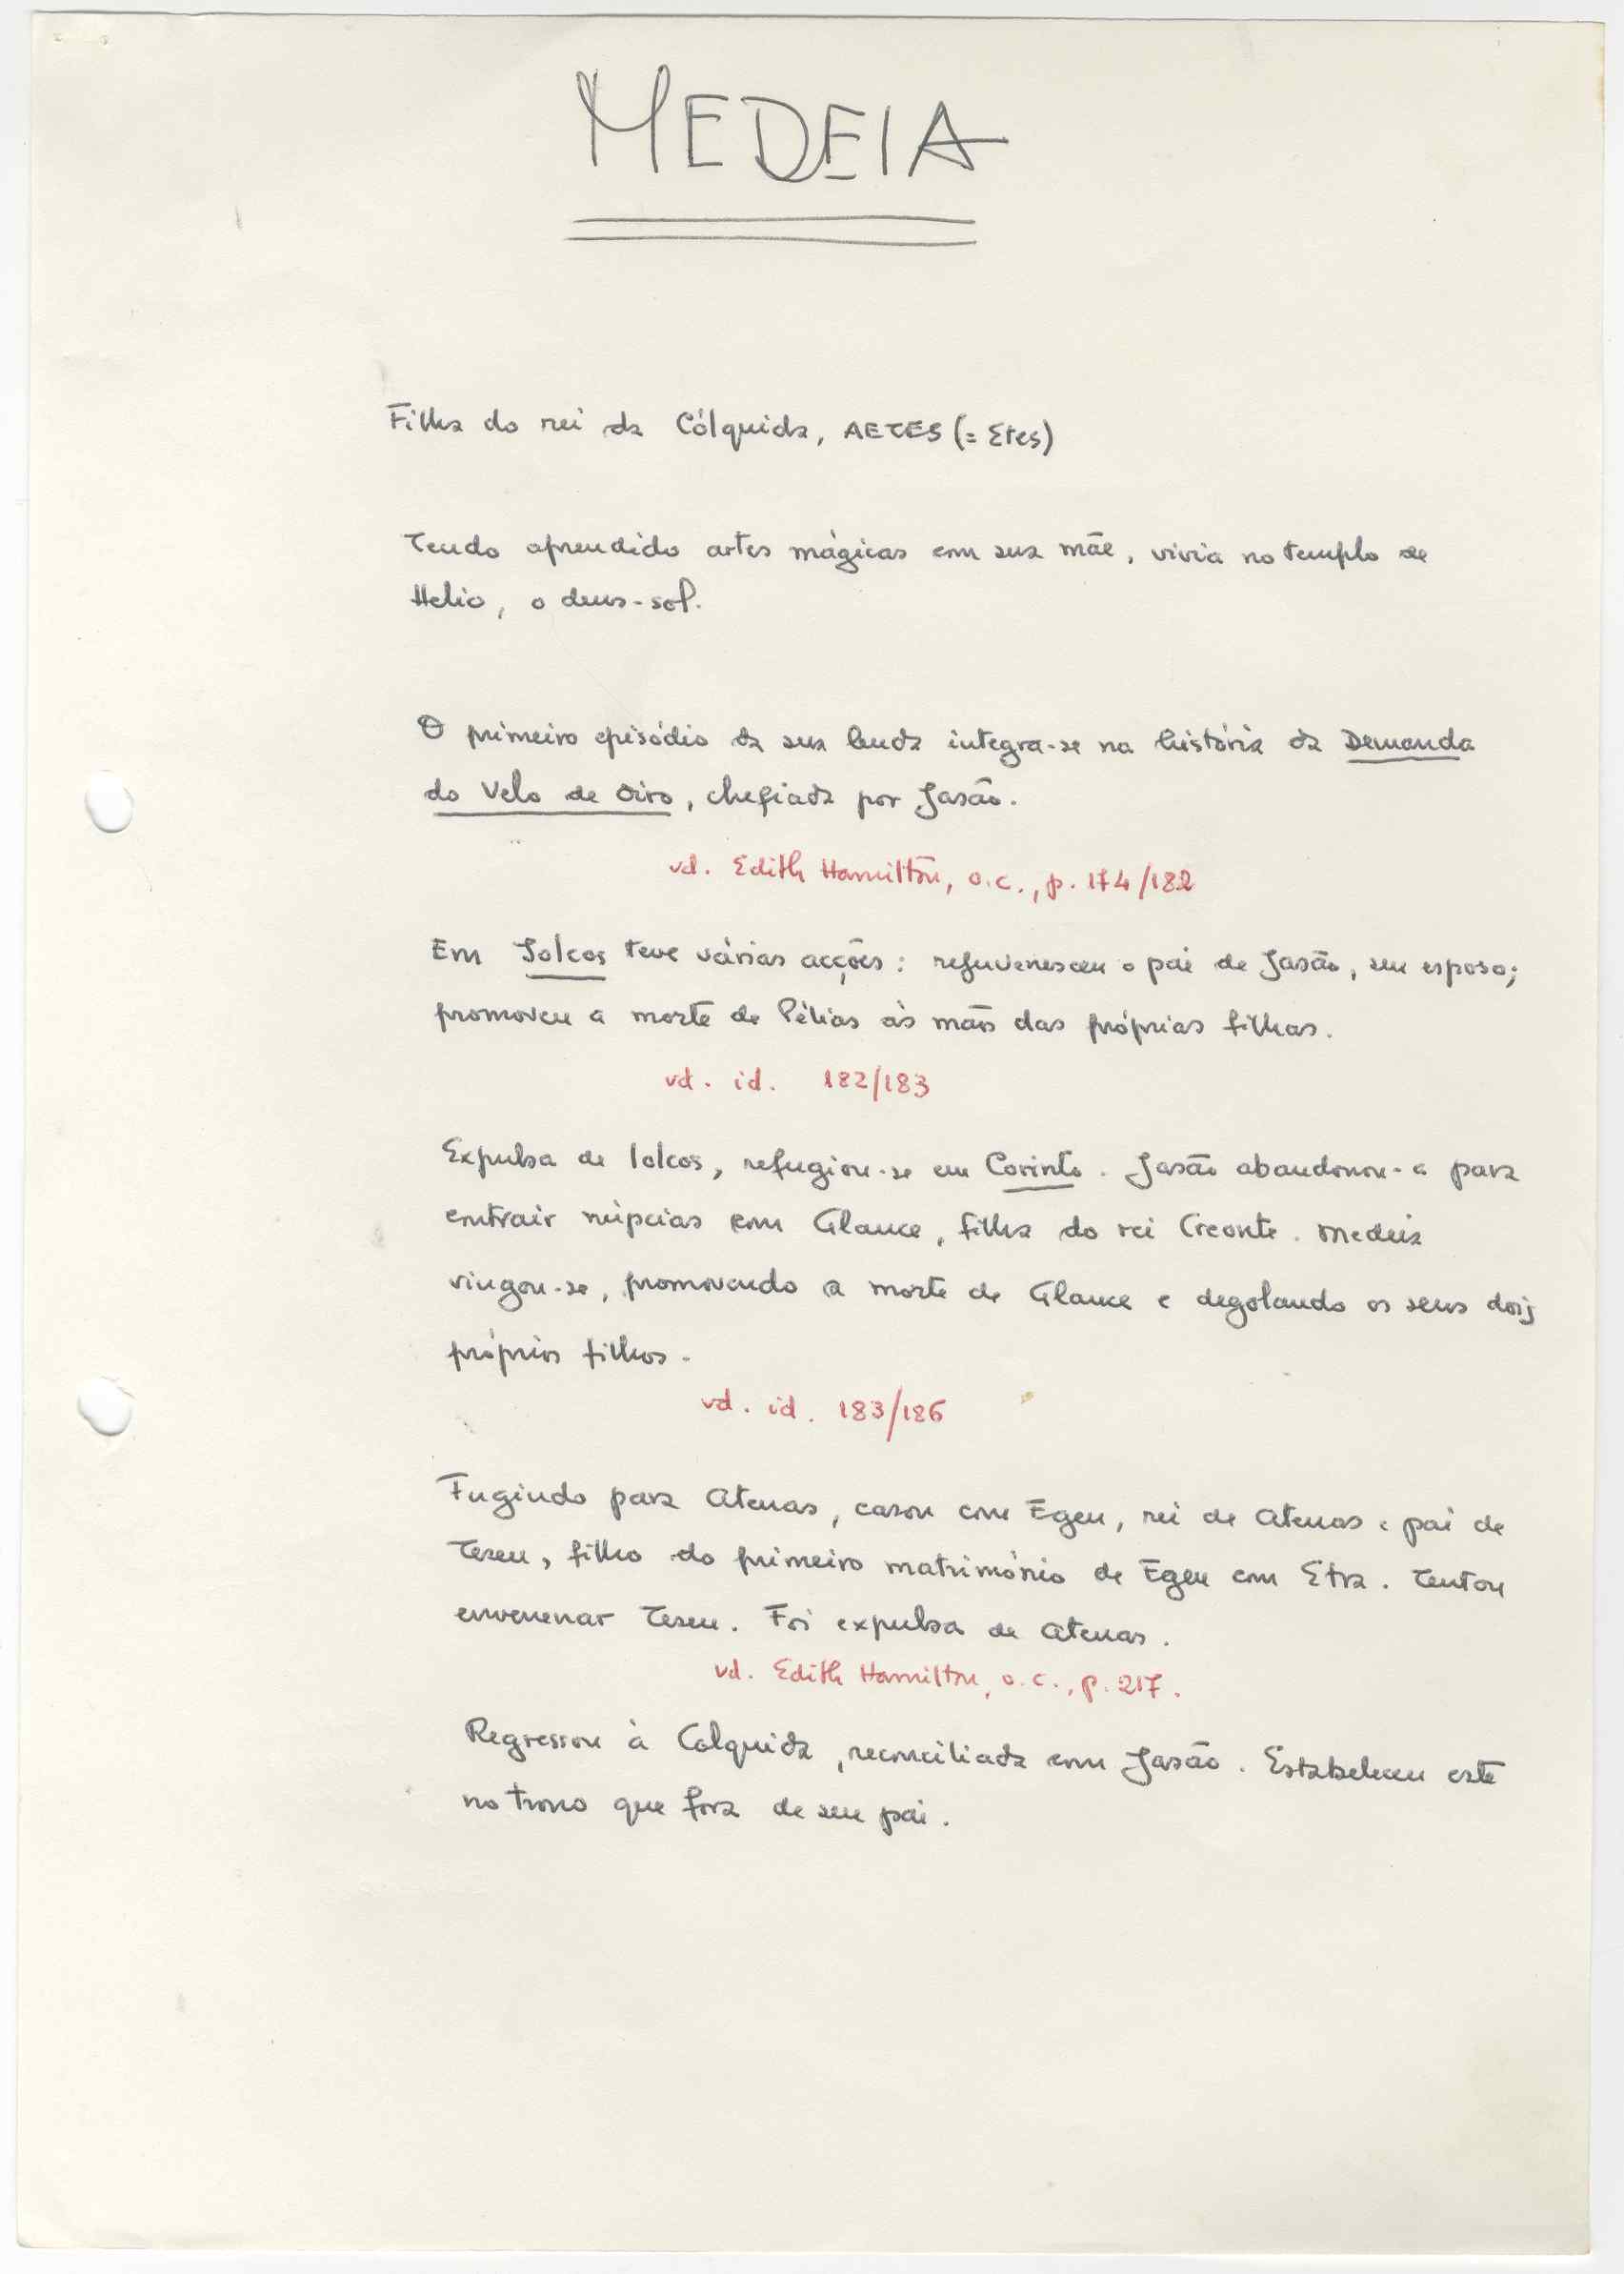 MEDEIA
Filha do rei da Cólquida, AETES (= Etes)
Tendo aprendido artes mágicas com sua mãe, vivia no templo de
Helio, o deus-sol.
O primeiro episódio da sua lenda integra-se na história da Demanda
do Velo de Oiro, chefiada por Jasão.
vd. Edith Hamilton, o.c., p. 174/182
Em Iolcos teve várias acções: rejuvenesceu o pai de Jasão, seu esposo;
promoveu a morte de Pélias às mãos das próprias filhas.
vd. id. 182/183
Expulsa de Iolcos, refugiou-se em Corinto. Jasão abandonou-a para
contrair núpcias com Glauce, filha do rei Creonte. Medeia
vingou-se, promovendo a morte de Glauce e degolando os seus dois
próprios filhos.
vd. id. 183/186
Fugindo para Atenas, casou com Egeu, rei de Atenas e pai de
Teseu, filho do primeiro matrimónio de Egeu com Etra. Tentou
envenenar Teseu. Foi expulsa de Atenas.
vd. Edith Hamilton, o.c., p. 217.
Regressou à Colquida, reconciliada com Jasão. Estabeleceu este
no trono que fora de seu pai.